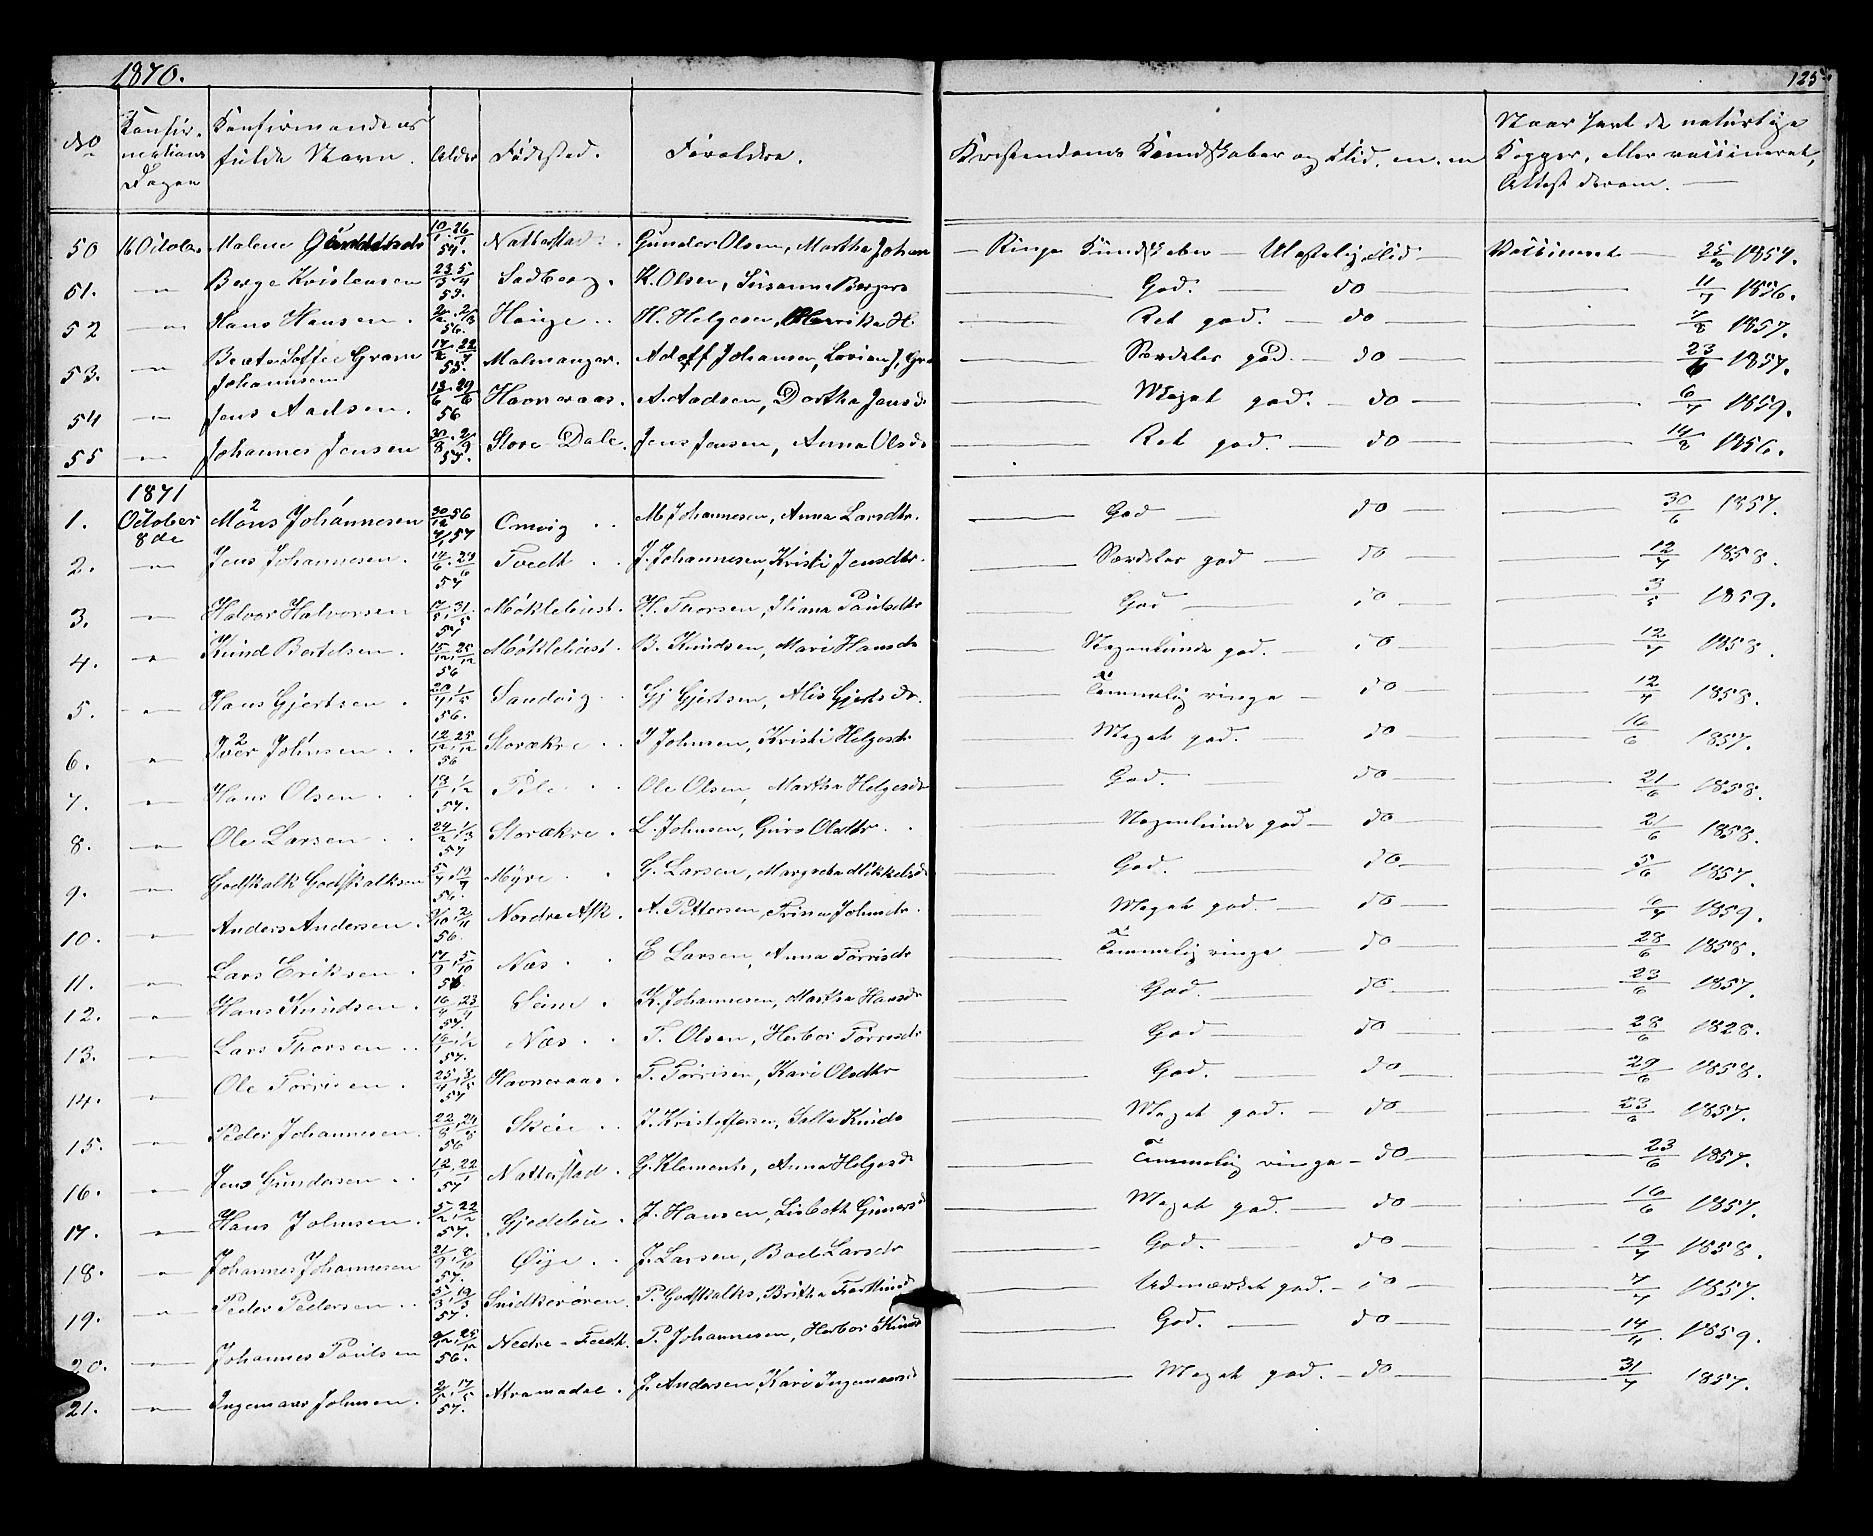 1870.
125
No Konfirmations Dagen Konfirmandens fulde Navn. Alder Födested. Foreldre. Kristendoms Kundskaber og Flid. m. m Naar havt de naturlige Kopper, eller vaccineret, Attest derom.
50 16 October Malene 10/1 26/1 54. Natterstad. Gunder Olsen, Martha Johan — Ringe Kundskaber — Ulastelig Flid — Vaccineret — 1857.
51. — Berge Kristensen 23/3 5/4 55. Sadberg. K. Olsen, Susanna Bergers — God. — do — 11/7 1856.
52 — Hans Hansen. 56. Hauge.. H. Helgesen, Henrika H. — Ret god. — do — 7/8 1857.
53. — Berte Soffie Grave Johannesen 17/2 22/7 55. Malmanger. Adolf Johansen, Lovise J. Gra — Særdeles god. — do — 23/6 1857.
54 — Jens Aadsen. 13/6 29/6 56 Havneraas. A. Aadsen, Dortha Jensd — Meget god. — do — 6/7 1859.
55 — Johannes Jensen 30/8 2/9 55. Store Dale. Jens Jensen, Anna Olsdr — Ret god. — do — 14/8 1856.
1871
1. October 8de Mons Johannesen 30/12 56 4/1 57 Omvig.. M Johannesen, Anna Larsdtr. — God — do — 30/6 1857.
2. — Jens Johannesen. 14/6 29/6 57 Tvedt.. J. Johannesen, Kristi Jensdtr. — Særdeles god — do — 12/7 1858.
3. — Halvor Halvorsen 17/5 31/5 57 Möklebust. H. Thorsen, Iliana Paulsdtr — God — do — 3/5 1859.
4. — Knud Bertelsen. 15/12 25/12 56 Möklebust. B. Knudsen, Mari Hansdr — Nogenlunde god. — do — 12/7 1858.
5. — Hans Gjertsen. 56. Sandvig.. Gj Gjertsen, Alis Gjertsdr. — Temmelig ringe — do — 12/7 1858.
6. — Iver Johnsen.. 12/12 25/12 56 Storækre.. I Johnsen, Kristi Helgesdr — Meget god. — do — 16/6 1857.
7. — Hans Olsen.. 57. Pile.. Ole Olsen, Martha Helgesdr — God. — do — 21/6 1858.
8. — Ole Larsen.. 24/2 1/3 57 Storækre. L. Johnsen, Guro Olsdtr. — Nogenlunde god — do — 21/6 1858.
9. — Godskalk Godskalksen 5/7 19/7 56 Myre.. G. Larsen, Margreta Mikkelsdr — God. — do — 5/6 1857.
10. — Anders Andersen. 56. Nordre Ask. A. Pettersen, Trina Johnsdr. — Meget god. — do — 6/7 1859.
11. — Lars Eriksen. 17/9 5/10 56. Næs.. E Larsen, Anna Törrisdr — Temmelig ringe — do — 28/6 1858.
12. — Hans Knudsen. 16/4 23/4 57. Seim. K. Johannesen, Martha Hansdr — God. — do — 23/6 1857.
13. — Lars Thorsen.. 57. Næs.. T. Olsen, Herbor Törresdr — God — do — 28/6 1828.
14. — Ole Törrisen. 57 Havneraas. T. Törrisen, Kari Olsdtr — God. — do — 29/6 1858.
15. — Peder Johannesen. 22/8 24/8 56 Skeie.. J. Kristoffersen, Salla Knuds — Meget god. — do — 23/6 1857.
16. — Jens Gundersen.. 12/1 22/1 57 Natterstad. G. Klements, Anna Helgesd — Temmelig ringe — do — 23/6 1857.
17. — Hans Johnsen. 5/2 22/2 57. Gjedebu. J. Hansen, Lisbeth Gunars — Meget god. — do — 16/6 1857.
18. — Johannes Johannesen 21/9 8/10 57. Öije.. J. Larsen, Boel Larsdr — God. — do — 19/7 1858.
19. — Peder Pedersen.. 5/3 19/3 57. Snidkerören. P. Godskalks, Britha — Udmærket god. — do — 7/7 1857.
20. — Johannes Paulsen 56. Nedre-Tvedt. P. Johannesen, Herbor Knuds — God. — do — 1859.
21. — Ingemaar Johnsen. 2/5 17/5 57. Atramadal. J. Andersen, Kari Ingemaarsd — Meget god. — do — 31/7 1857.